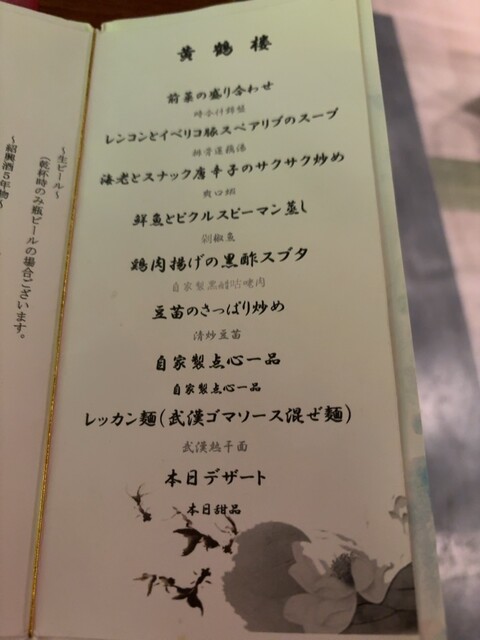 黄鶴楼
前菜の盛り合わせ
時令什錦盤
レンコンとイベリコ豚スペアリブのスープ
排骨蓮藕湯
海老とスナック唐辛子のサクサク炒め
爽口蝦
鮮魚とピクルスピーマン蒸し
剁椒魚
鶏肉揚げの黒酢スブタ
自家製黒醋咕咾肉
豆苗のさっぱり炒め
清炒豆苗
自家製点心一品
自家製点心一品
レッカン麺(武漢ゴマソース混ぜ麺)
武漢熱干面
本日デザート
本日甜品
~生ビール~
(乾杯時のみ瓶ビールの場合ございます。
~紹興酒5年物~